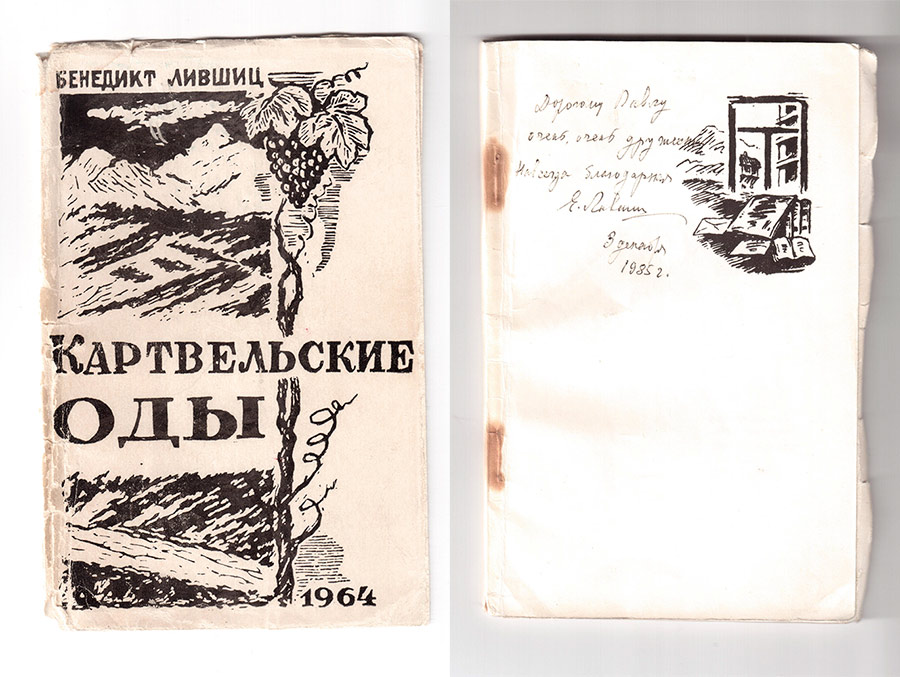 БЕНЕДИКТ ЛИВШИЦ
КАРТВЕЛЬСКИЕ
ОДЫ
1964
Дорогому Павлу
очень, очень дружески
Навсегда благодарная
Е. Лившиц
3 декабря
1985 г.